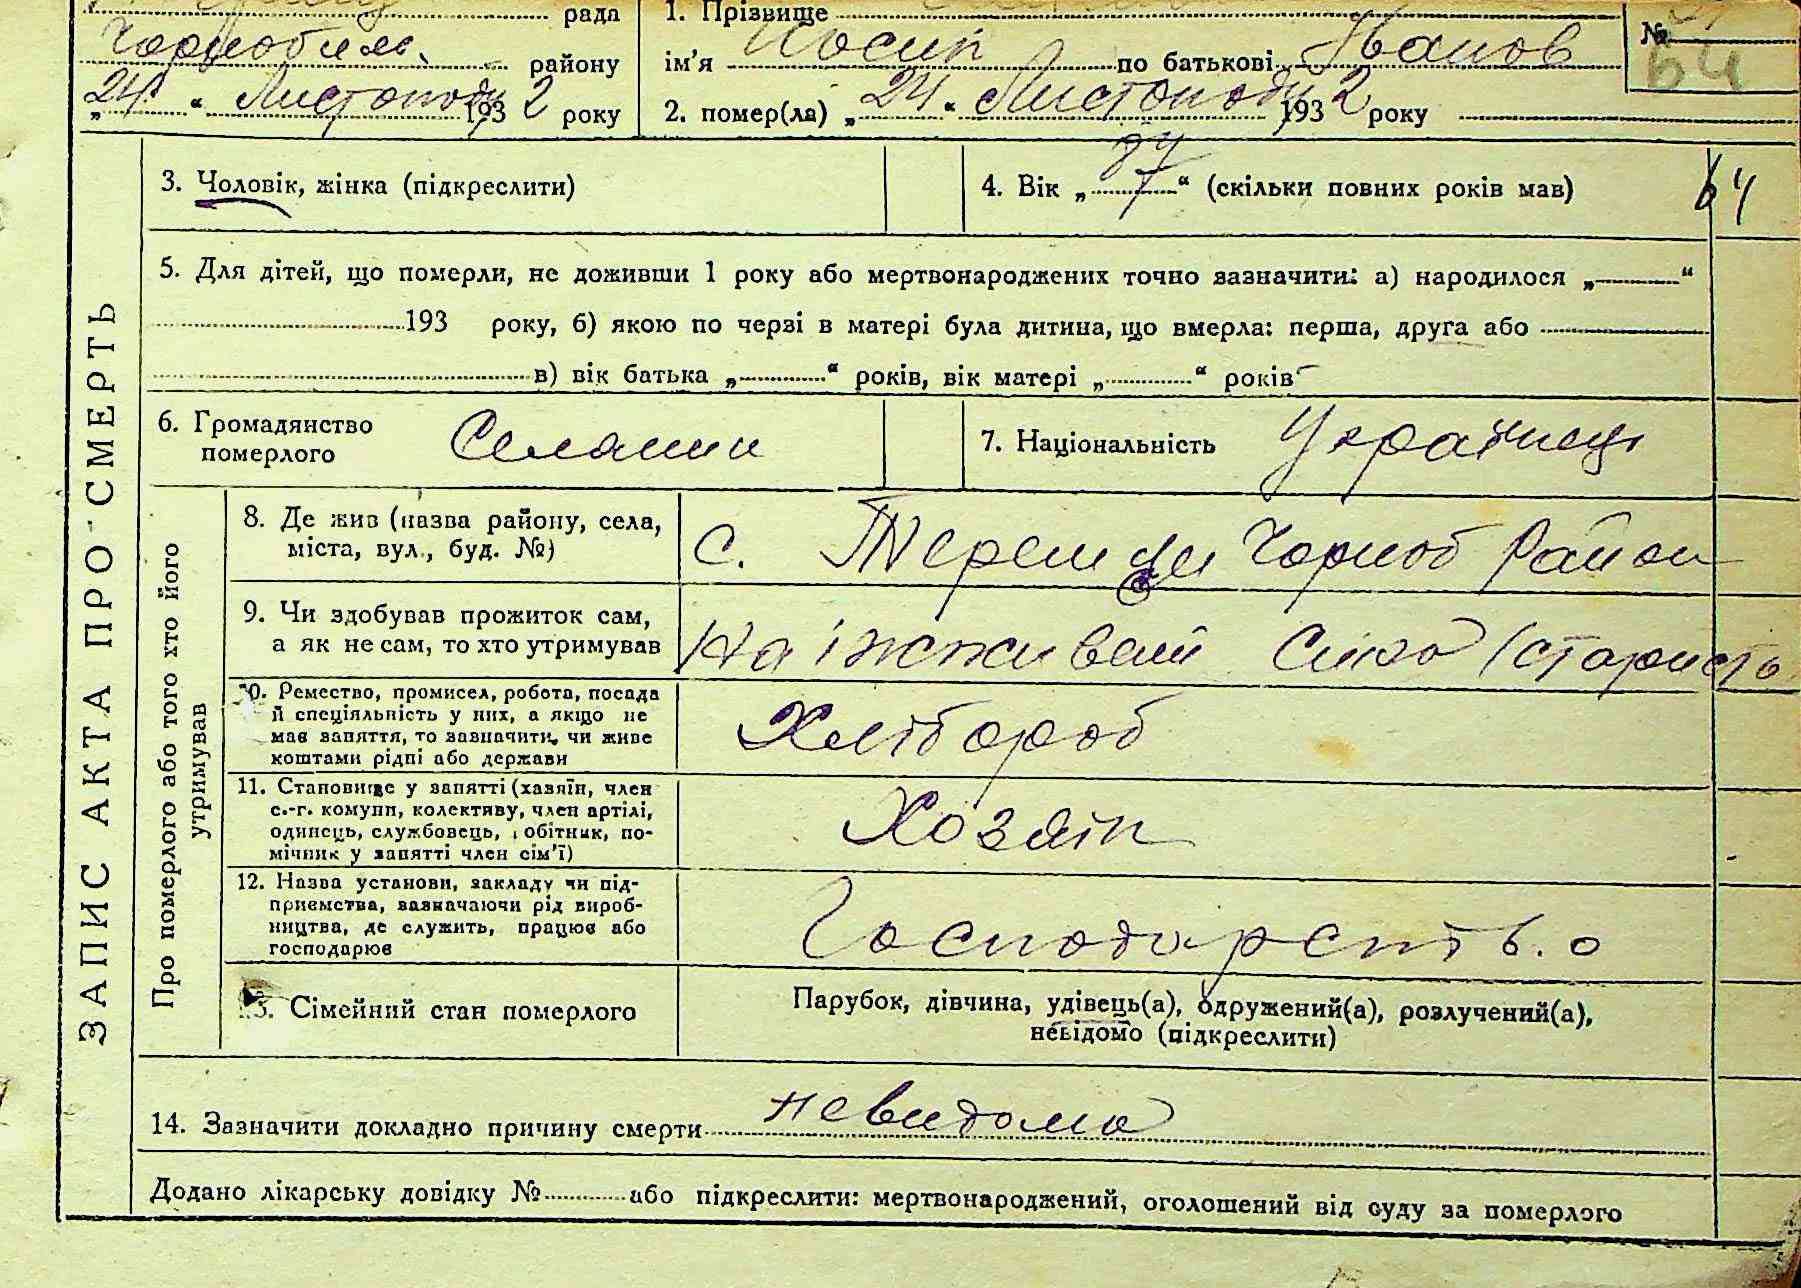 рада 1. Прізвище
Чорнобиль району ім'я Йосип по батькові Іванов №
64
„24“ Листопада 1932 року 2. помер(ла) „24“ Листопада 1932 року
3. Чоловік, жінка (підкреслити) 4. Вік „87“ (скільки повних років мав) 64
5. Для дітей, що померли, не доживши 1 року або мертвонароджених точно зазначити: а) народилося „ “
193 року, б) якою по черві в матері була дитина, що вмерла: перша, друга або
в) вік батька „ “ років, вік матері „ “ років
6. Громадянство
померлого Селянин 7. Національність Українець
ЗАПИС АКТА ПРО СМЕРТЬ
Про померлого або того хто його
утримував
8. Де жив (назва району, села,
міста, вул., буд. №) с. Теремці Чорноб Район
9. Чи здобував прожиток сам,
а як не сам, то хто утримував На іжживені Сина (старисть
10. Ремество, промисел, робота, посада
й спеціяльність у них, а якщо не
має заняття, то зазначити, чи живе
коштами рідні або держави Хлібороб
11. Становище у занятті (хазяїн, член
с.-г. комуни, колективу, член артілі,
одинець, службовець, робітник, по-
мічник у занятті член сім'ї) Хозяін
12. Назва установи, закладу чи під-
приємства, зазначаючи рід вироб-
ництва, де служить, працює або
господарює Господарств.о
13. Сімейний стан померлого Парубок, дівчина, удівець(а), одружений(а), розлучений(а),
невідомо (підкреслити)
14. Зазначити докладно причину смерти невидома
Додано лікарську довідку № або підкреслити: мертвонароджений, оголошений від суду за померлого